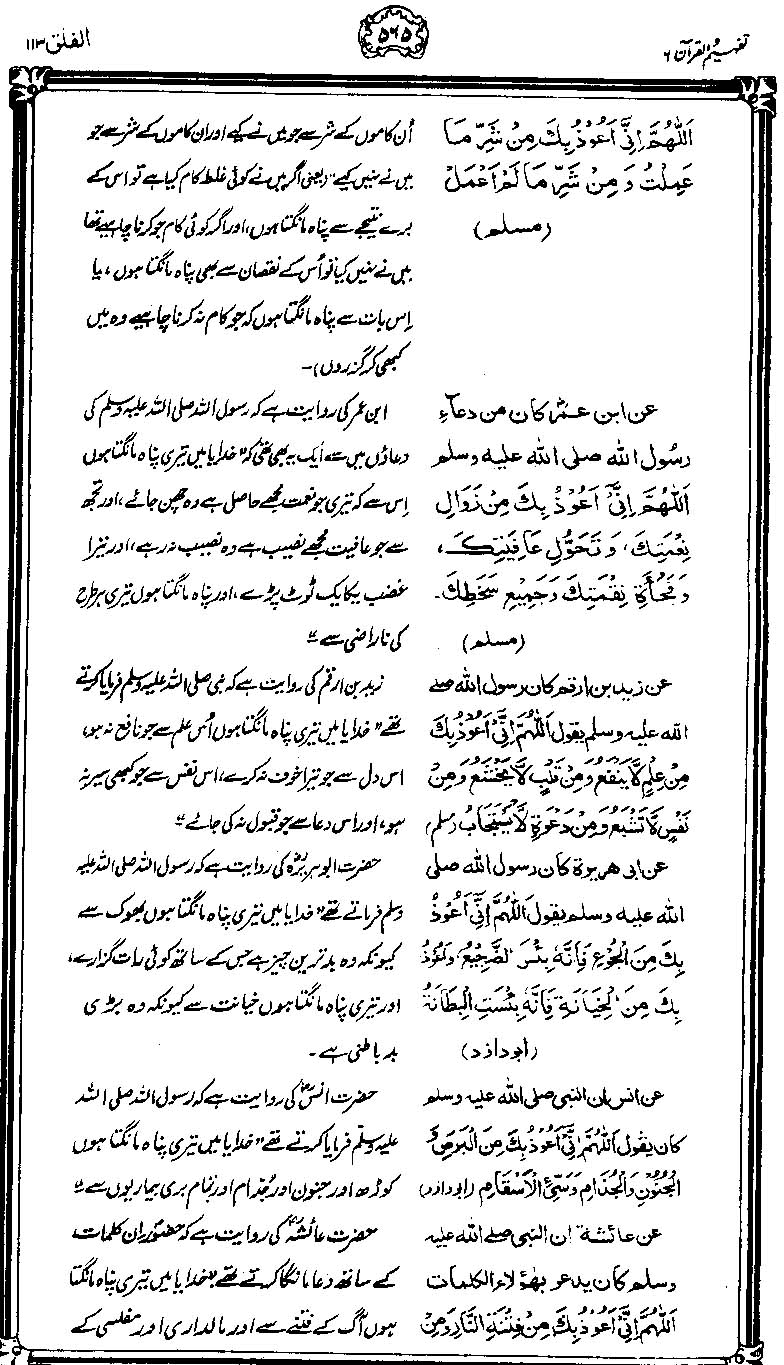 تفہیم القرآن ۶
۵۶۵
الفلق ۱۱۳
اَللّٰهُمَّ اِنِّیْ اَعُوْذُ بِكَ مِنْ شَرِّ مَا
عَمِلْتُ وَ مِنْ شَرِّ مَا لَمْ اَعْمَلْ
(مسلم)
اُن کاموں کے شر سے جو میں نے کیے اور ان کاموں کے شر سے جو
میں نے نہیں کیے" (یعنی اگر میں نے کوئی غلط کام کیا ہے تو اس کے
برے نتیجے سے پناہ مانگتا ہوں، اور اگر کوئی کام جو کرنا چاہیے تھا
میں نے نہیں کیا تو اُس کے نقصان سے بھی پناہ مانگتا ہوں، یا
اِس بات سے پناہ مانگتا ہوں کہ جو کام نہ کرنا چاہیے وہ میں
کبھی کر گزروں)۔
عن ابن عمرؓ کان من دعاء
رسُول الله صلی الله علیه وسلم
اَللّٰهُمَّ اِنِّیْ اَعُوْذُ بِكَ مِنْ زَوَالِ
نِعْمَتِكَ، وَتَحَوُّلِ عَافِیَتِكَ،
وَفُجَأَةِ نِقْمَتِكَ وَجَمِیْعِ سَخَطِكَ۔
(مسلم)
ابن عمر کی روایت ہے کہ رسول اللہ صلی اللہ علیہ وسلم کی
دعاؤں میں سے ایک یہ بھی تھی کہ "خدایا میں تیری پناہ مانگتا ہوں
اِس سے کہ تیری جو نعمت مجھے حاصل ہے وہ چھن جائے، اور تجھ
سے جو عافیت مجھے نصیب ہے وہ نصیب نہ رہے، اور تیرا
غضب یکایک ٹوٹ پڑے، اور پناہ مانگتا ہوں تیری ہر طرح
کی ناراضی سے"
عن زید بن ارقم کان رسول الله صلی
الله علیه وسلم یقول اَللّٰهُمَّ اِنِّیْ اَعُوْذُ بِكَ
مِنْ عِلْمٍ لَّا یَنْفَعُ وَمِنْ قَلْبٍ لَّا یَخْشَعُ وَمِنْ
نَفْسٍ لَّا تَشْبَعُ وَمِنْ دَعْوَةٍ لَّا یُسْتَجَابُ (مسلم)
زید بن ارقم کی روایت ہے کہ نبی صلی اللہ علیہ وسلم فرمایا کرتے
تھے "خدایا میں تیری پناہ مانگتا ہوں اُس علم سے جو نافع نہ ہو،
اس دل سے جو تیرا خوف نہ کرے، اس نفس سے جو کبھی سیر نہ
ہو، اور اس دعا سے جو قبول نہ کی جائے"
عن ابی هریرة کان رسول الله صلی
الله علیه وسلم یقول اَللّٰهُمَّ اِنِّیْ اَعُوْذُ
بِكَ مِنَ الْجُوْعِ فَاِنَّهٗ بِئْسَ الضَّجِیْعُ وَاَعُوْذُ
بِكَ مِنَ الْخِیَانَةِ فَاِنَّهٗ بِئْسَتِ الْبِطَانَةُ
(ابوداؤد)
حضرت ابو ہریرہؓ کی روایت ہے کہ رسول اللہ صلی اللہ علیہ
وسلم فرماتے تھے "خدایا میں تیری پناہ مانگتا ہوں بھوک سے
کیونکہ وہ بدترین چیز ہے جس کے ساتھ کوئی رات گزارے،
اور تیری پناہ مانگتا ہوں خیانت سے کیونکہ وہ بڑی
بد باطنی ہے۔
عن انس ان النبی صلی الله علیه وسلم
کان یقول اَللّٰهُمَّ اِنِّیْ اَعُوْذُ بِكَ مِنَ الْبَرَصِ وَ
الْجُنُوْنِ وَالْجُذَامِ وَسَیِّئِ الْاَسْقَامِ (ابوداؤد)
حضرت انسؓ کی روایت ہے کہ رسول اللہ صلی اللہ
علیہ وسلم فرمایا کرتے تھے "خدایا میں تیری پناہ مانگتا ہوں
کوڑھ اور جنون اور جُذام اور تمام بری بیماریوں سے"
عن عائشة ان النبی صلی الله علیه
وسلم کان یدعو بهٰؤلاء الکلمات
اَللّٰهُمَّ اِنِّیْ اَعُوْذُ بِكَ مِنْ فِتْنَةِ النَّارِ وَمِنْ
حضرت عائشہؓ کی روایت ہے کہ حضورؐ ان کلمات
کے ساتھ دعا مانگا کرتے تھے "خدایا میں تیری پناہ مانگتا
ہوں آگ کے فتنے سے اور مالداری اور مفلسی کے